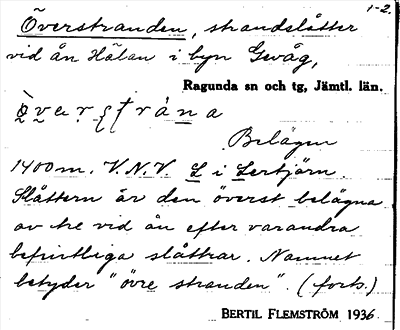 1-2.
Överstranden, strandslåtter
vid ån Hålan i byn Gevåg,
Ragunda sn och tg, Jämtl. län.
Belägen
1400 m. V.N.V. L i Lertjärn.
Slåttern är den överst belägna
av tre vid ån efter varandra
befintliga slåttrar. Namnet
betyder "övre stranden". (forts.)
BERTIL FLEMSTRÖM 1936